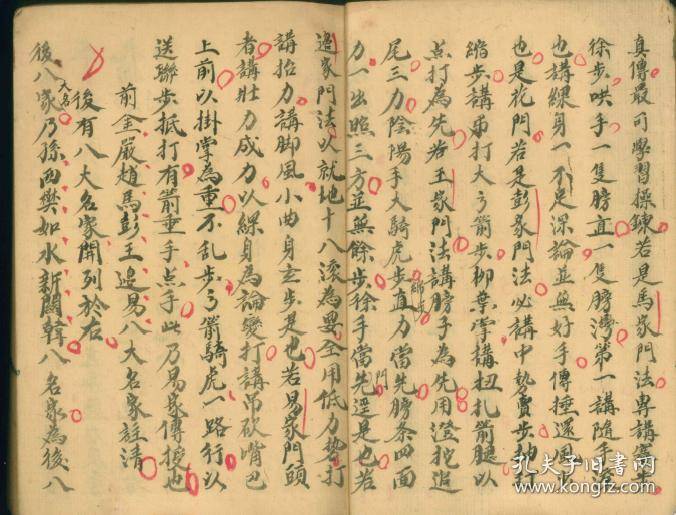 真傳最可學習操鍊若是馬家門法專講
徐步哄手一隻膀直一隻膀灣第一講隨手
也講綵身一不足深論並無好手傳捶還風
也是花門若是彭家門法必講中勢賣步
縮步講弔打大弓箭步柳葉掌搆扭扎箭腿以
点打為先若王家門法講膀手為先用澄挖追
尾三力陰陽手大騎虎步直力當先膀条四面
力一出照三方並無餘步徐手當先逕是也若
門
邉家門法以就地十八滚為要全用低刀勢打
講抬力講脚風小曲身玄步是也若易家門頭
者講壯力成刀以綵身為論變打講吊砍嘴巴
上前以掛掌為重不乱步弓箭騎虎一路行以
送聯步抵打有箭垂手点手此乃易家傳授也
前金嚴趙馬彭王邉易八大名家註清
後有八大名家開列於右
大名
後八家乃孫茜樊如水新關韓八名家為後八
孔夫子旧书网